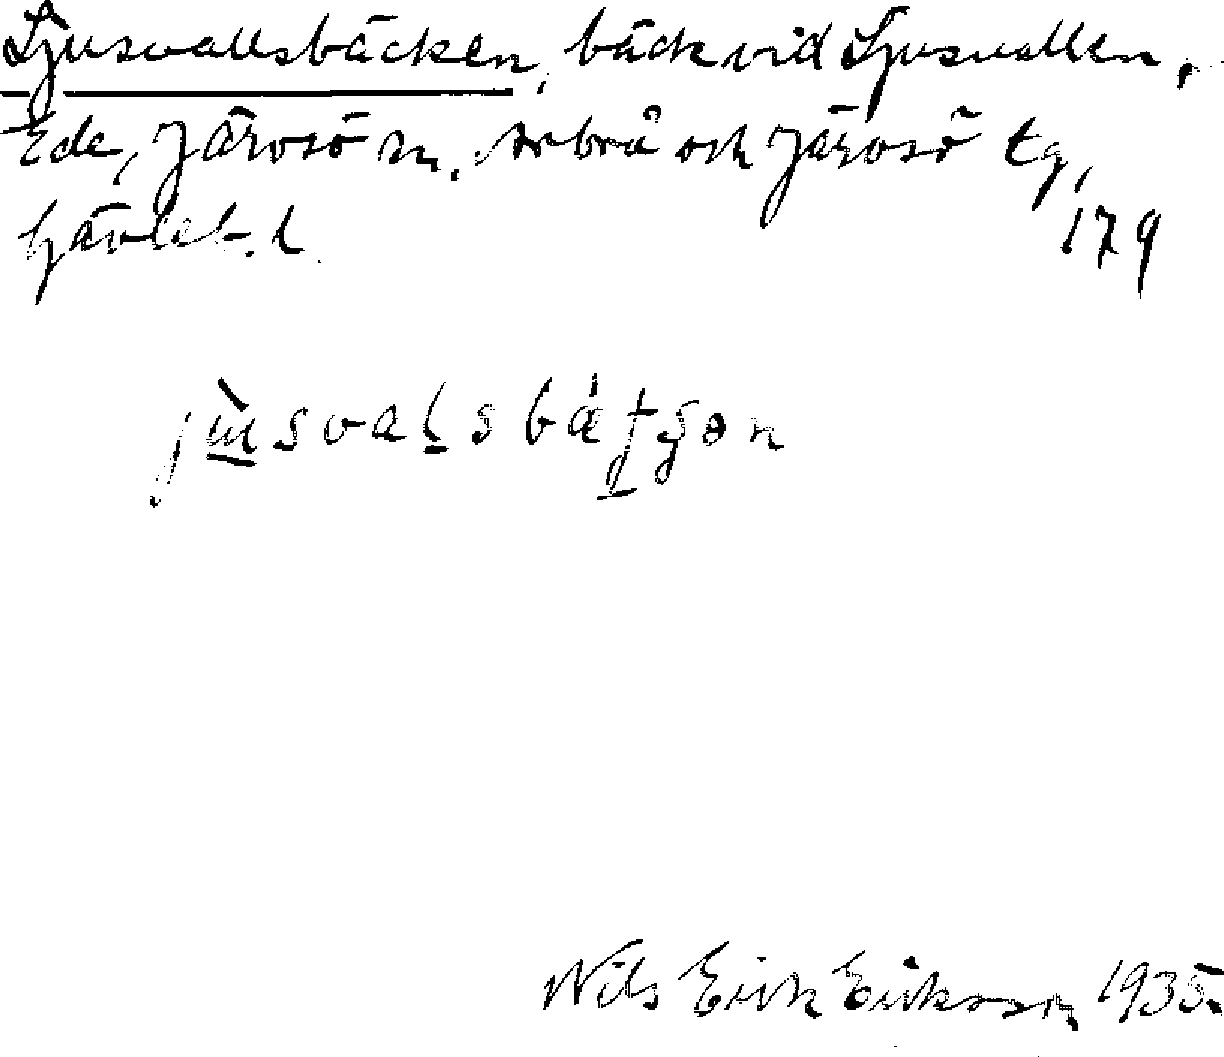 Ljusvallsbäcken, bäck vid Ljusvallen,
Ede, Järvsö sn. Arbrå och Järvsö tg,
Gävleb. l.
179
Nils Erik Eriksson 1935.